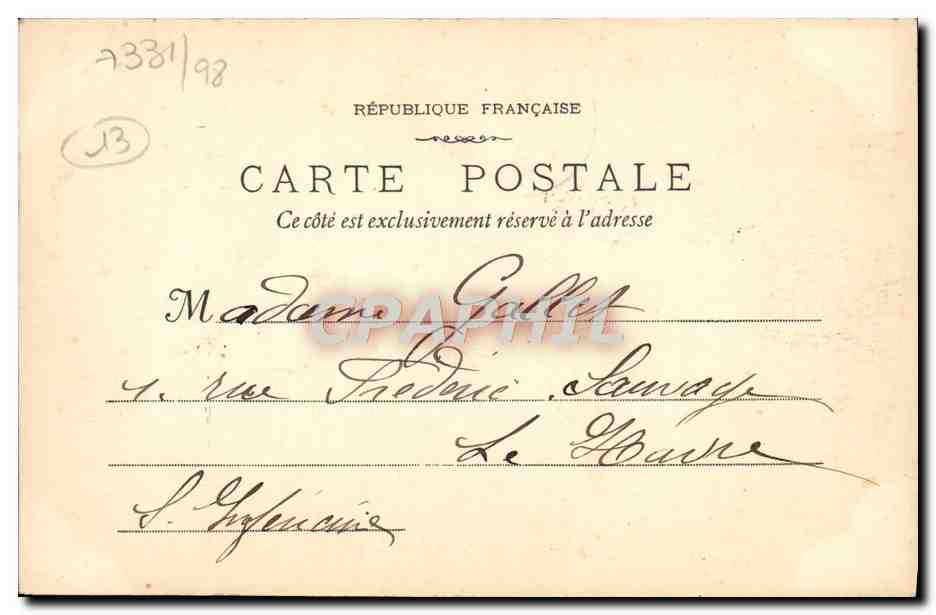 7331/98
13
RÉPUBLIQUE FRANÇAISE
CARTE POSTALE
Ce côté est exclusivement réservé à l'adresse
Madame Gallet
CPAPHIL
1. rue Frédéric Sauvage
Le Havre
S. Inférieure